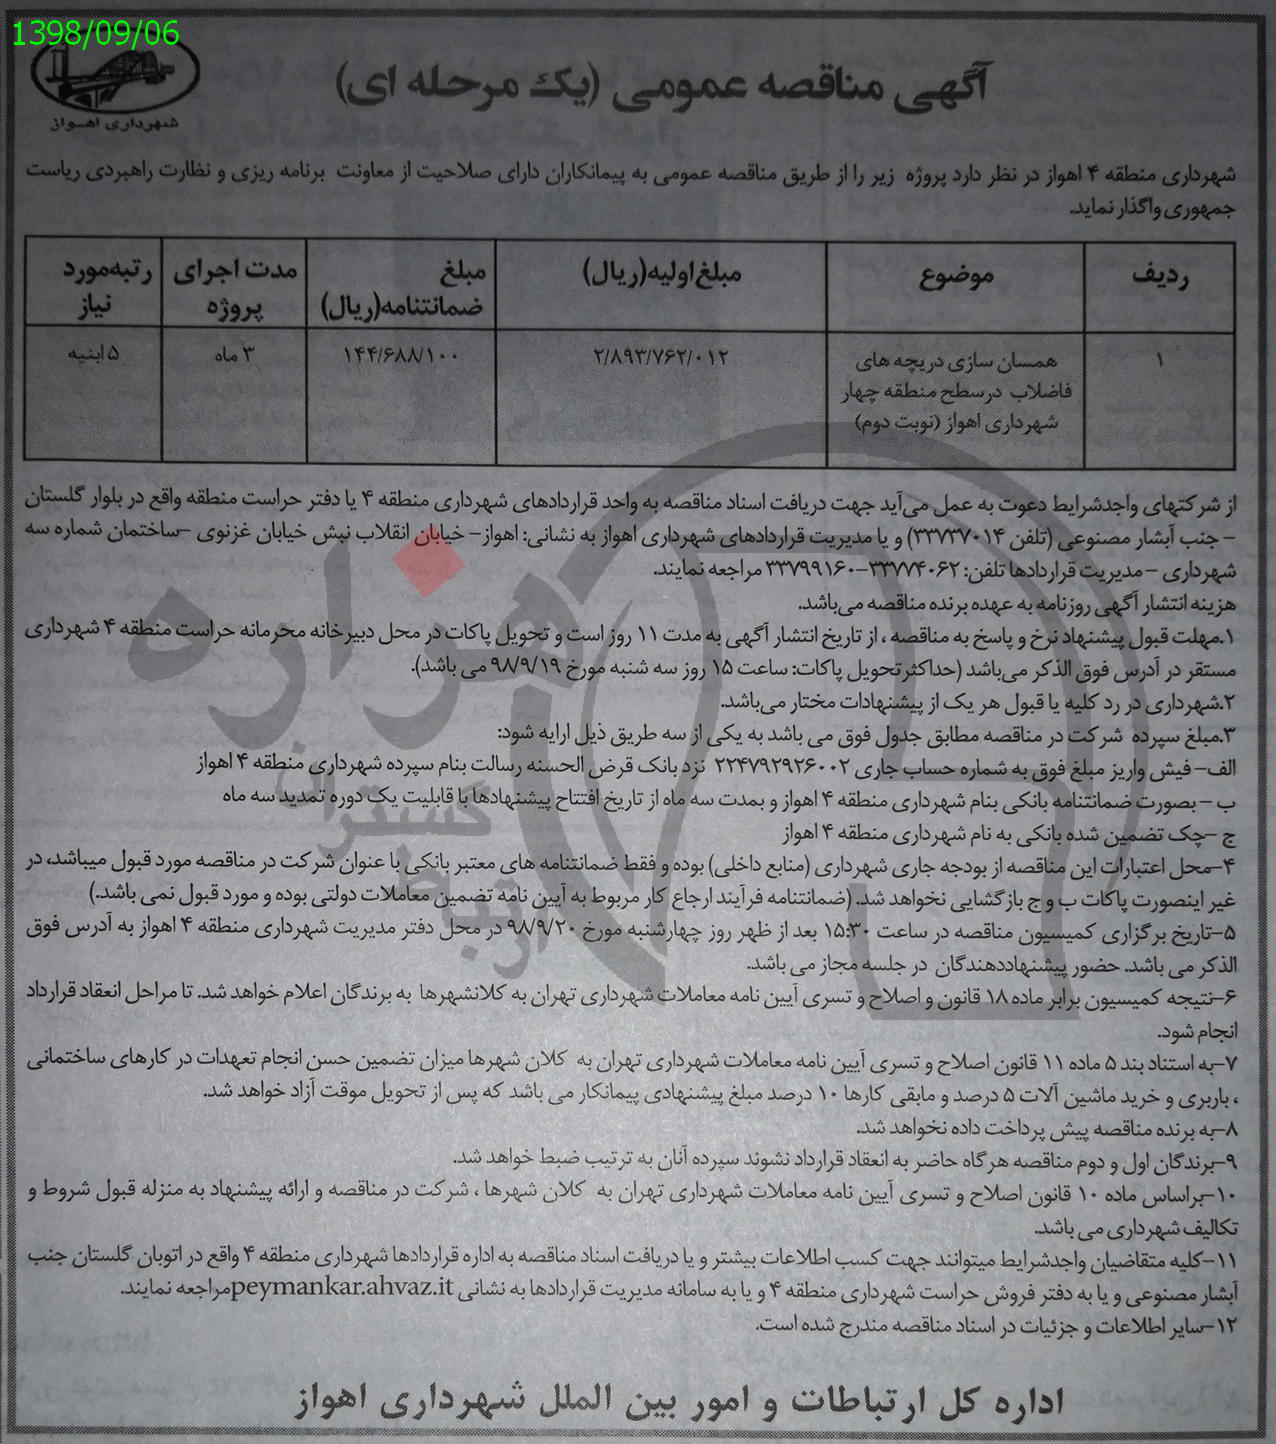 1398/09/06
شهرداری اهواز
آگهی مناقصه عمومی (یک مرحله ای)
شهرداری منطقه ۴ اهواز در نظر دارد پروژه زیر را از طریق مناقصه عمومی به پیمانکاران دارای صلاحیت از معاونت برنامه ریزی و نظارت راهبردی ریاست
جمهوری واگذار نماید.
ردیف موضوع مبلغ اولیه(ریال) مبلغ ضمانتنامه(ریال) مدت اجرای پروژه رتبه مورد نیاز
۱ همسان سازی دریچه های ۲/۸۹۳/۷۶۲/۰۱۲ ۱۴۴/۶۸۸/۱۰۰ ۳ ماه ۵ ابنیه
فاضلاب درسطح منطقه چهار
شهرداری اهواز (نوبت دوم)
از شرکتهای واجدشرایط دعوت به عمل می‌آید جهت دریافت اسناد مناقصه به واحد قراردادهای شهرداری منطقه ۴ یا دفتر حراست منطقه واقع در بلوار گلستان
– جنب آبشار مصنوعی (تلفن ۳۳۷۳۷۰۱۴) و یا مدیریت قراردادهای شهرداری اهواز به نشانی: اهواز– خیابان انقلاب نبش خیابان غزنوی –ساختمان شماره سه
شهرداری –مدیریت قراردادها تلفن: ۳۳۷۷۴۰۶۲–۳۳۷۹۹۱۶۰ مراجعه نمایند.
هزینه انتشار آگهی روزنامه به عهده برنده مناقصه می‌باشد.
۱.مهلت قبول پیشنهاد نرخ و پاسخ به مناقصه ، از تاریخ انتشار آگهی به مدت ۱۱ روز است و تحویل پاکات در محل دبیرخانه محرمانه حراست منطقه ۴ شهرداری
مستقر در آدرس فوق الذکر می‌باشد (حداکثرتحویل پاکات: ساعت ۱۵ روز سه شنبه مورخ ۹۸/۹/۱۹ می باشد).
۲.شهرداری در رد کلیه یا قبول هر یک از پیشنهادات مختار می‌باشد.
۳.مبلغ سپرده شرکت در مناقصه مطابق جدول فوق می باشد به یکی از سه طریق ذیل ارایه شود:
الف– فیش واریز مبلغ فوق به شماره حساب جاری ۲۲۴۷۹۲۹۲۶۰۰۲ نزد بانک قرض الحسنه رسالت بنام سپرده شهرداری منطقه ۴ اهواز
ب – بصورت ضمانتنامه بانکی بنام شهرداری منطقه ۴ اهواز و بمدت سه ماه از تاریخ افتتاح پیشنهادها با قابلیت یک دوره تمدید سه ماه
ج –چک تضمین شده بانکی به نام شهرداری منطقه ۴ اهواز
۴–محل اعتبارات این مناقصه از بودجه جاری شهرداری (منابع داخلی) بوده و فقط ضمانتنامه های معتبر بانکی با عنوان شرکت در مناقصه مورد قبول میباشد، در
غیر اینصورت پاکات ب و ج بازگشایی نخواهد شد. (ضمانتنامه فرآیند ارجاع کار مربوط به آیین نامه تضمین معاملات دولتی بوده و مورد قبول نمی باشد.)
۵–تاریخ برگزاری کمیسیون مناقصه در ساعت ۱۵:۳۰ بعد از ظهر روز چهارشنبه مورخ ۹۸/۹/۲۰ در محل دفتر مدیریت شهرداری منطقه ۴ اهواز به آدرس فوق
الذکر می باشد. حضور پیشنهاددهندگان در جلسه مجاز می باشد.
۶–نتیجه کمیسیون برابر ماده ۱۸ قانون و اصلاح و تسری آیین نامه معاملات شهرداری تهران به کلانشهرها به برندگان اعلام خواهد شد. تا مراحل انعقاد قرارداد
انجام شود.
۷–به استناد بند ۵ ماده ۱۱ قانون اصلاح و تسری آیین نامه معاملات شهرداری تهران به کلان شهرها میزان تضمین حسن انجام تعهدات در کارهای ساختمانی
، باربری و خرید ماشین آلات ۵ درصد و مابقی کارها ۱۰ درصد مبلغ پیشنهادی پیمانکار می باشد که پس از تحویل موقت آزاد خواهد شد.
۸–به برنده مناقصه پیش پرداخت داده نخواهد شد.
۹–برندگان اول و دوم مناقصه هرگاه حاضر به انعقاد قرارداد نشوند سپرده آنان به ترتیب ضبط خواهد شد.
۱۰–براساس ماده ۱۰ قانون اصلاح و تسری آیین نامه معاملات شهرداری تهران به کلان شهرها ، شرکت در مناقصه و ارائه پیشنهاد به منزله قبول شروط و
تکالیف شهرداری می باشد.
۱۱–کلیه متقاضیان واجدشرایط میتوانند جهت کسب اطلاعات بیشتر و یا دریافت اسناد مناقصه به اداره قراردادها شهرداری منطقه ۴ واقع در اتوبان گلستان جنب
آبشار مصنوعی و یا به دفتر فروش حراست شهرداری منطقه ۴ و یا به سامانه مدیریت قراردادها به نشانی peymankar.ahvaz.it مراجعه نمایند.
۱۲–سایر اطلاعات و جزئیات در اسناد مناقصه مندرج شده است.
اداره کل ارتباطات و امور بین الملل شهرداری اهواز